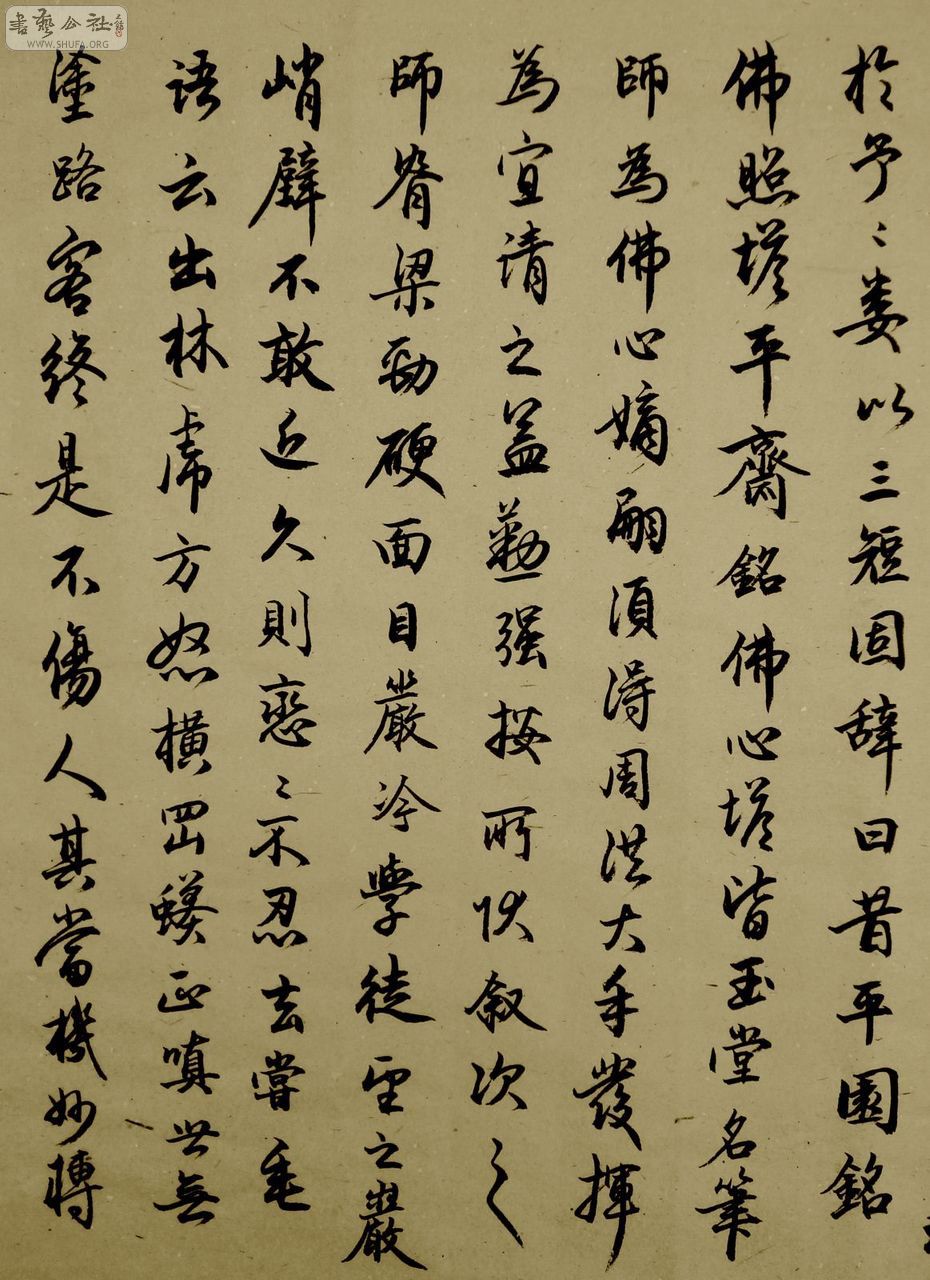 書藝公社
WWW.SHUFA.ORG
於予〻婁以三短固辞曰昔平園銘
佛照塔平齋銘佛心塔皆玉堂名筆
師為佛心嫡嗣須得周洪大手發揮
為宜請之益勤强按所状叙次之
師脊梁勁硬面目嚴冷學徒望之巖
峭壁不敢近久則戀〻不忍去嘗垂
語云出林虎方怒横罡蟒正嗔世無
塗路客終是不傷人其當機妙轉